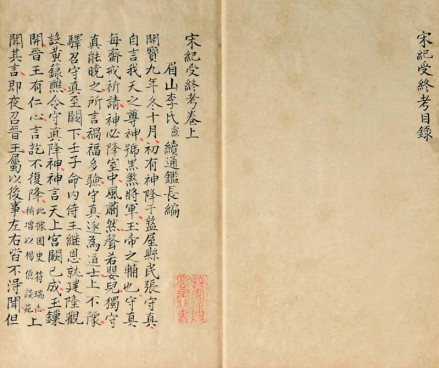 宋紀受終考目錄
宋紀受終考卷上
眉山李氏燾續通鑑長編
開寶九年冬十月初有神降于盩厔縣民張守真
自言我天之尊神號黑煞將軍玉帝之輔也守真
每齋戒祈請神必降室中風肅然聲若嬰兒獨守
真能曉之所言禍福多驗守真遂為道士上不豫
驛召守真至闕下壬子命內侍王繼恩就建隆觀
設黃籙醮令守真降神神言天上宮闕已成玉鏁
開晉王有仁心言訖不復降此據國史符瑞志稍增以楊億談苑上
聞其言即夜召晉王屬以後事左右皆不淂聞但